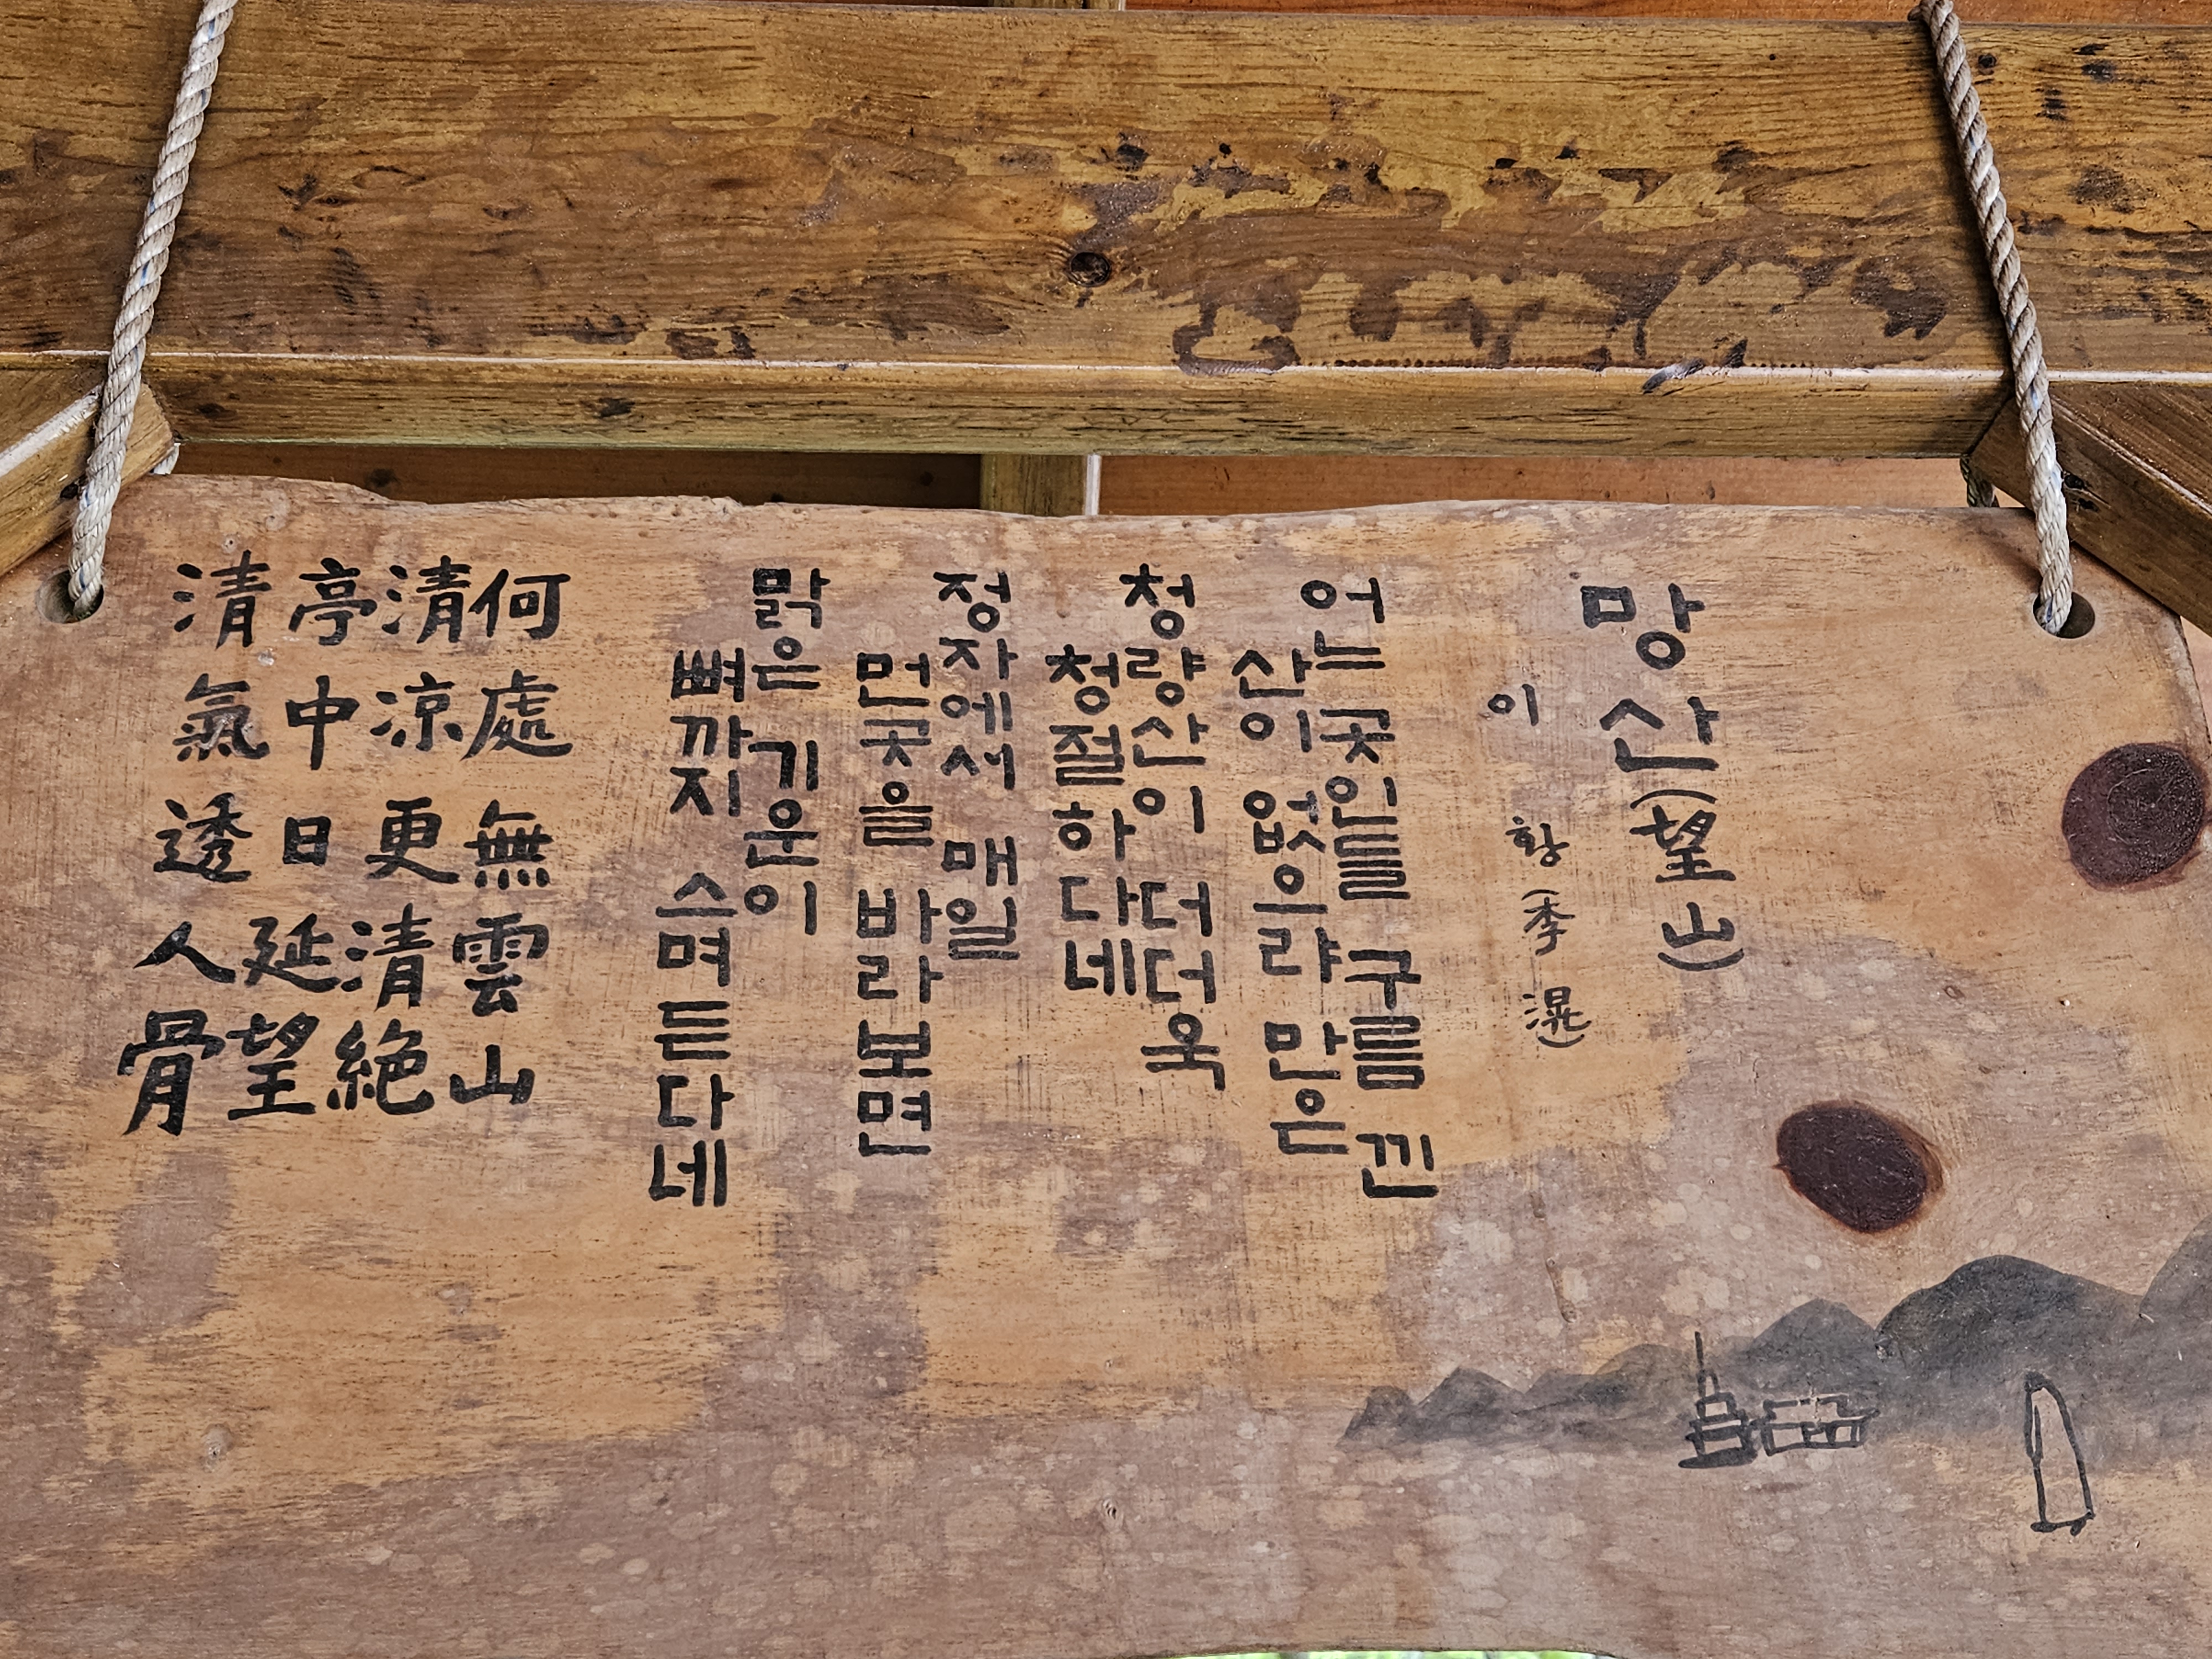 망산(望山)
이 황(李 滉)
어느 곳인들 구름 낀
산이 없으랴 만은
청량산이 더더욱
청절하다네
정자에서 매일
먼곳을 바라보면
맑은 기운이
뼈까지 스며든다네
何處無雲山
清涼更清絶
亭中日延望
清氣透人骨